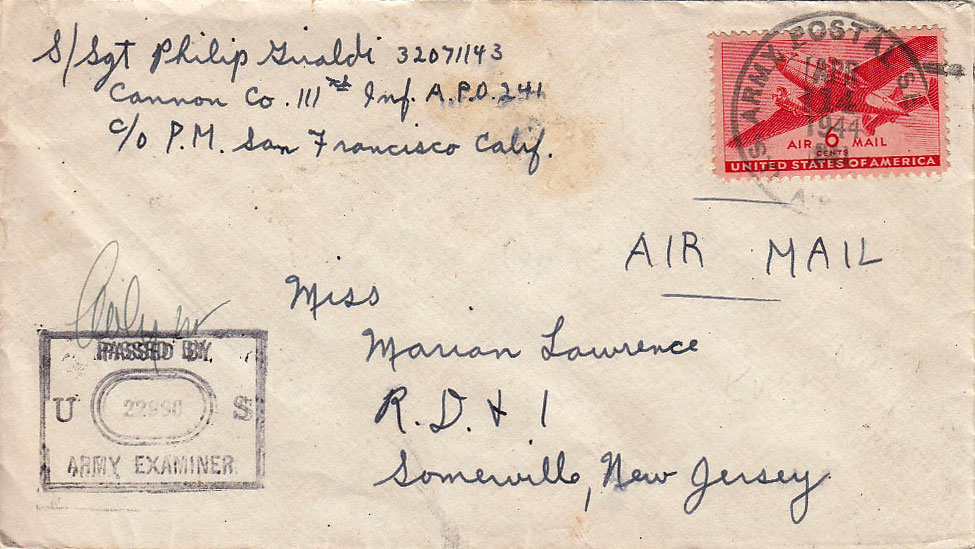 S/Sgt Philip Giraldi 32071143
Cannon Co. 111th Inf. A.P.O. 241
c/o P.M. San Francisco Calif.
U.S. ARMY POSTAL SE
APR
1944
AIR 6 MAIL
CENTS
UNITED STATES OF AMERICA
AIR MAIL
Miss
Marian Lawrence
R.D. # 1
Somerville, New Jersey
PASSED BY
U 22990 S
ARMY EXAMINER